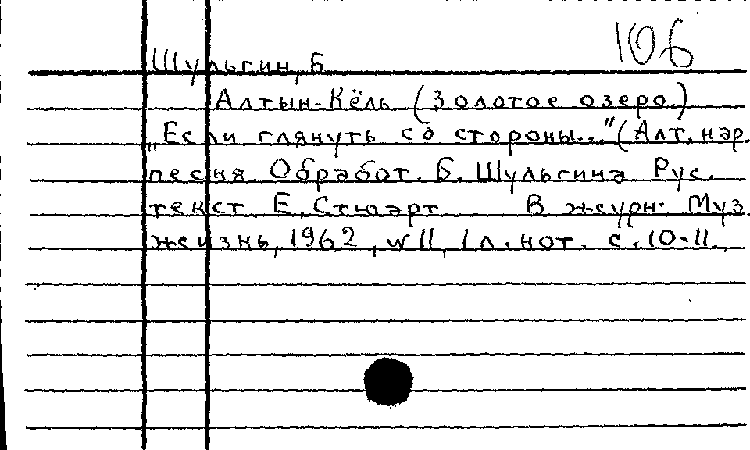 106
Шульгин, Б.
Алтын-Кёль (Золотое озеро)
„Если глянуть со стороны..." (Алт. нар.
песня Обработ. Б. Шульгина Рус.
текст Е. Стюарт В журн. Муз.
жизнь, 1962, № 11, 1 л. нот. с. 10-11.